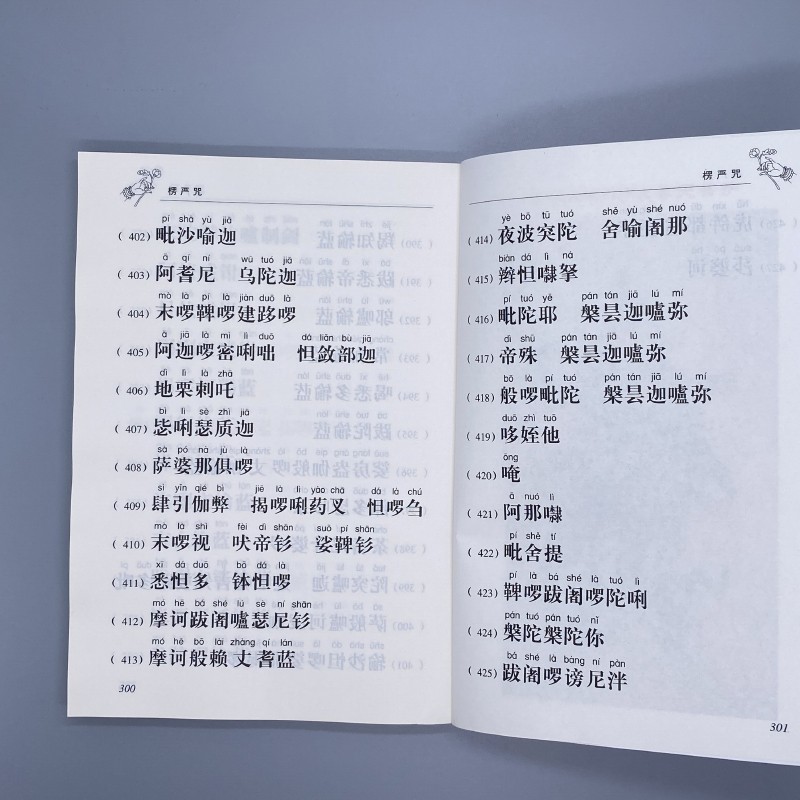 楞严咒
pí shā yù jiā
(402) 毗沙喻迦
ā qí ní wū tuó jiā
(403) 阿耆尼 乌陀迦
mò là pí là jiàn duō là
(404) 末啰鞞啰建跢啰
ā jiā là mì lì duō dá liǎn bù jiā
(405) 阿迦啰密唎咄 怛敛部迦
dì lì là zhā
(406) 地栗剌吒
bì lì sè zhì jiā
(407) 毖唎瑟质迦
sà pó nà jù là
(408) 萨婆那俱啰
sì yǐn qié bì jié là lì yào chā dá là chú
(409) 肆引伽弊 揭啰唎药叉 怛啰刍
mò là shì fèi dì shān suō pí shān
(410) 末啰视 吠帝钐 娑鞞钐
xī dá duō bō dá là
(411) 悉怛多 钵怛啰
mó hē bá shé lú sè ní shān
(412) 摩诃跋阇嚧瑟尼钐
mó hē bō lài zhàng qí lán
(413) 摩诃般赖丈耆蓝
300
楞严咒
yè bō tū tuó shě yù shé nuó
(414) 夜波突陀 舍喻阇那
biàn dá lì ná
(415) 辫怛㘑拏
pí tuó yē pán tán jiā lú mí
(416) 毗陀耶 槃昙迦嚧弥
dì shū pán tán jiā lú mí
(417) 帝殊 槃昙迦嚧弥
bō là pí tuó pán tán jiā lú mí
(418) 般啰毗陀 槃昙迦嚧弥
duō zhí tuō
(419) 哆姪他
ōng
(420) 唵
ā nuó lì
(421) 阿那㘑
pí shě tí
(422) 毗舍提
pí là bá shé là tuó lì
(423) 鞞啰跋阇啰陀唎
pán tuó pán tuó nǐ
(424) 槃陀槃陀你
bá shé là bàng ní pàn
(425) 跋阇啰谤尼泮
301